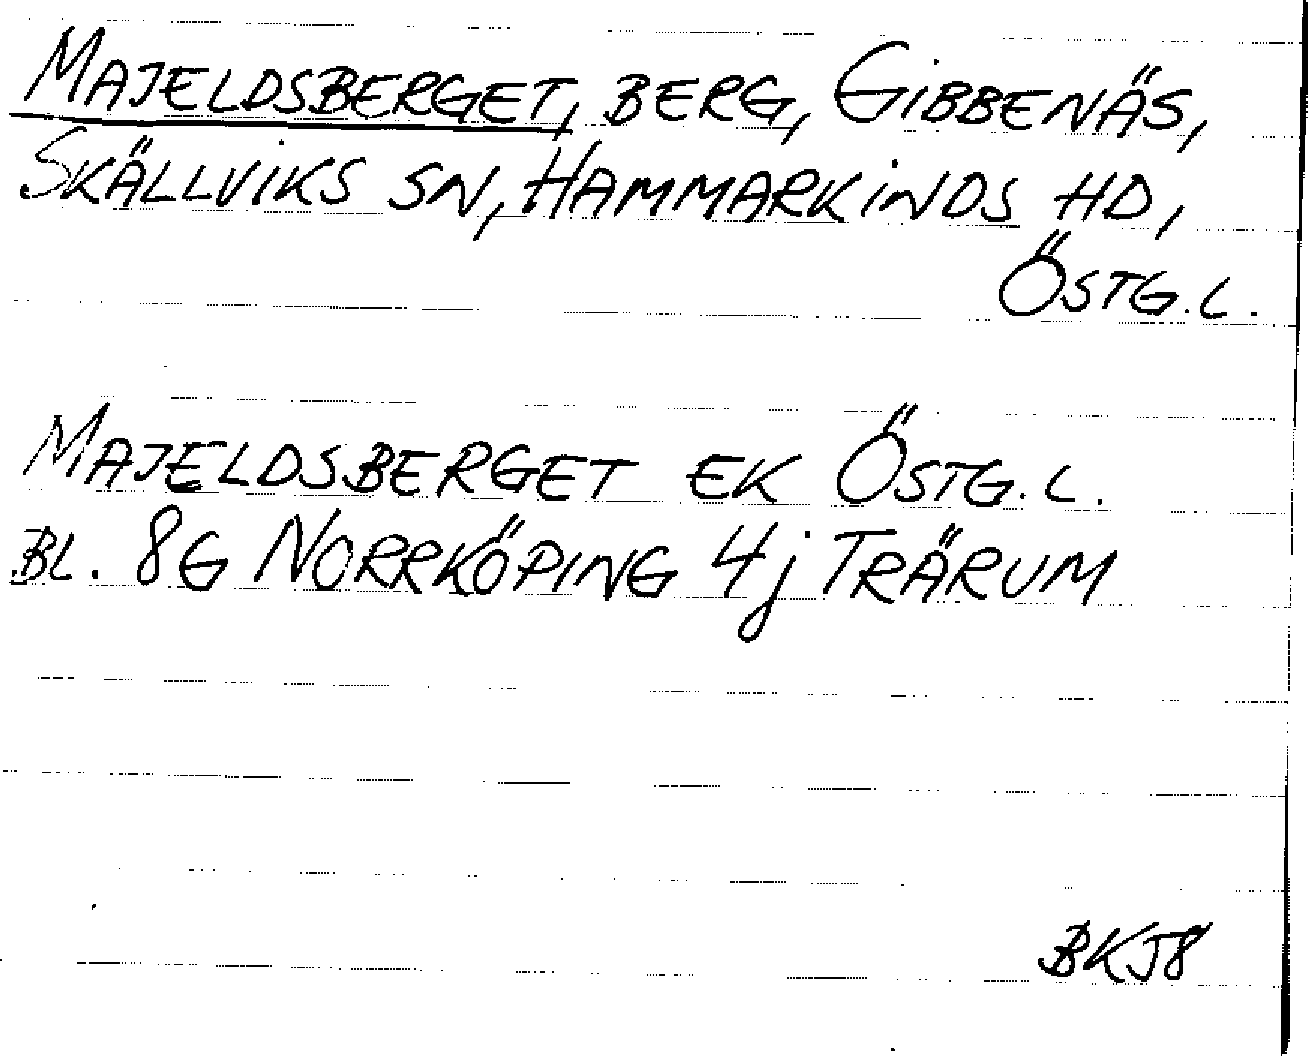 MAJELDSBERGET, BERG, GIBBENÄS,
SKÄLLVIKS SN, HAMMARKINDS HD,
ÖSTG.L.
MAJELDSBERGET EK ÖSTG.L.
BL. 8G NORRKÖPING 4j TRÄRUM
BKJ8